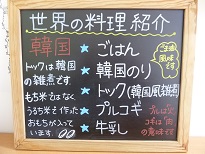 世界の料理紹介
韓国
トックは韓国
の雑煮です
もち米ではなく
うるち米で作った
おもちが入って
います。
★ごはん
★韓国のり
★トック(韓国風雑煮)
★プルコギ
★牛乳
生姜
風味
です
プルは火
コギは肉
の意味です